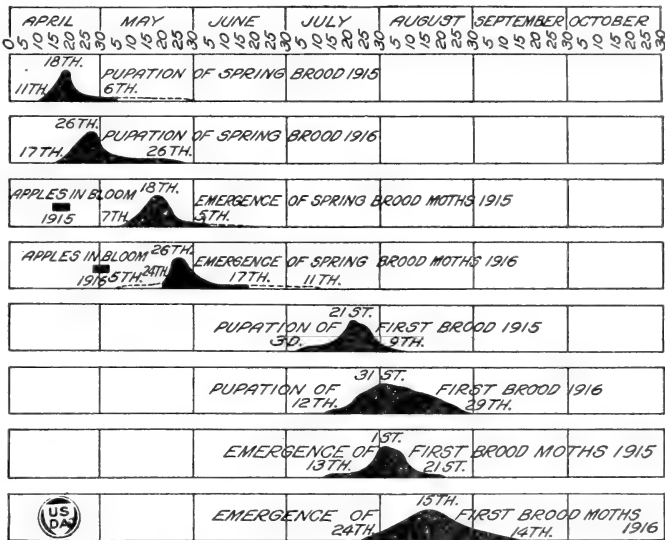 APRIL MAY JUNE JULY AUGUST SEPTEMBER OCTOBER
0 5 10 15 20 25 30 5 10 15 20 25 30 5 10 15 20 25 30 5 10 15 20 25 30 5 10 15 20 25 30 5 10 15 20 25 30 5 10 15 20 25 30
18TH.
PUPATION OF SPRING BROOD 1915
11TH. 6TH.
26TH.
PUPATION OF SPRING BROOD 1916
17TH. 26TH.
APPLES IN BLOOM 18TH. EMERGENCE OF SPRING BROOD MOTHS 1915
1915 7TH. 5TH.
APPLES IN BLOOM 26TH. EMERGENCE OF SPRING BROOD MOTHS 1916
1916 5TH. 24TH. 17TH. 11TH.
21ST.
PUPATION OF FIRST BROOD 1915
3D. 9TH.
31ST.
PUPATION OF FIRST BROOD 1916
12TH. 29TH.
1ST.
EMERGENCE OF FIRST BROOD MOTHS 1915
13TH. 21ST.
15TH.
US
DA
EMERGENCE OF FIRST BROOD MOTHS
24TH. 14TH. 1916